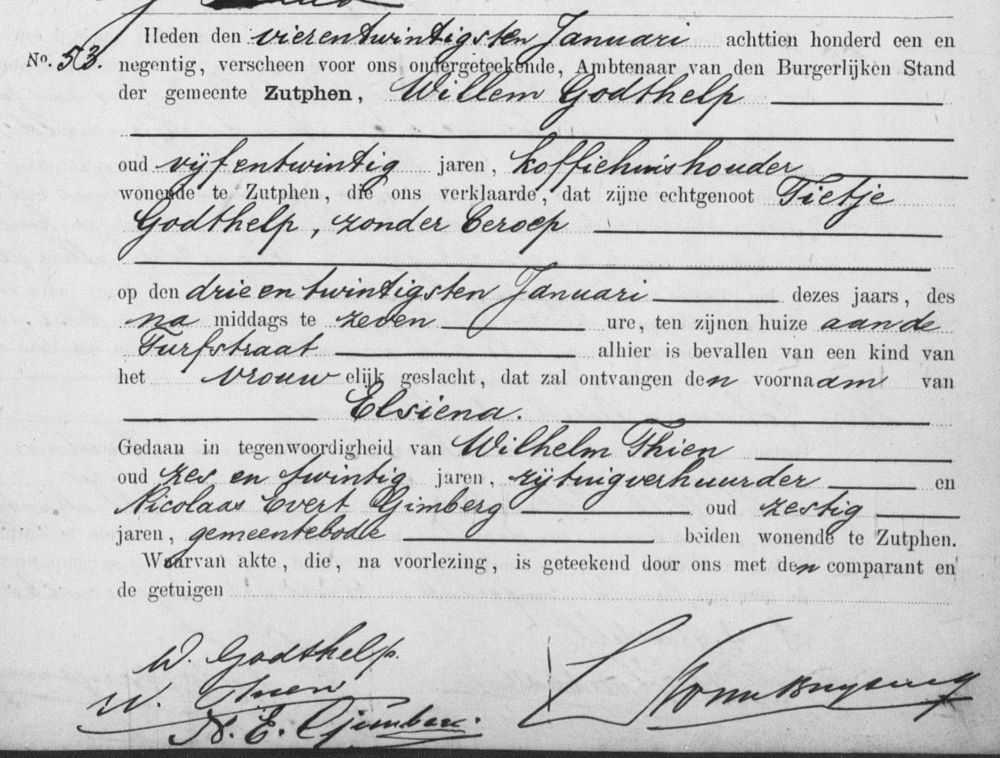 Heden den vierentwintigsten Januari achttien honderd een en
No. 53. negentig, verscheen voor ons ondergeteekende, Ambtenaar van den Burgerlijken Stand
der gemeente Zutphen, Willem Godthelp
oud vijfentwintig jaren, koffiehuishouder
wonende te Zutphen, die ons verklaarde, dat zijne echtgenoot Tietje
Godthelp, zonder beroep
op den drieentwintigsten Januari dezes jaars, des
na middags te zeven ure, ten zijnen huize aan de
Turfstraat alhier is bevallen van een kind van
het vrouwelijk geslacht, dat zal ontvangen den voornaam van
Elsiena.
Gedaan in tegenwoordigheid van Wilhelm Thien
oud zes en twintig jaren, rijtuigverhuurder en
Nicolaas Evert Gimberg oud zestig
jaren, gemeentebode beiden wonende te Zutphen.
Waarvan akte, die, na voorlezing, is geteekend door ons met den comparant en
de getuigen
W. Godthelp.
W. Thien
N. E. Gimberg.